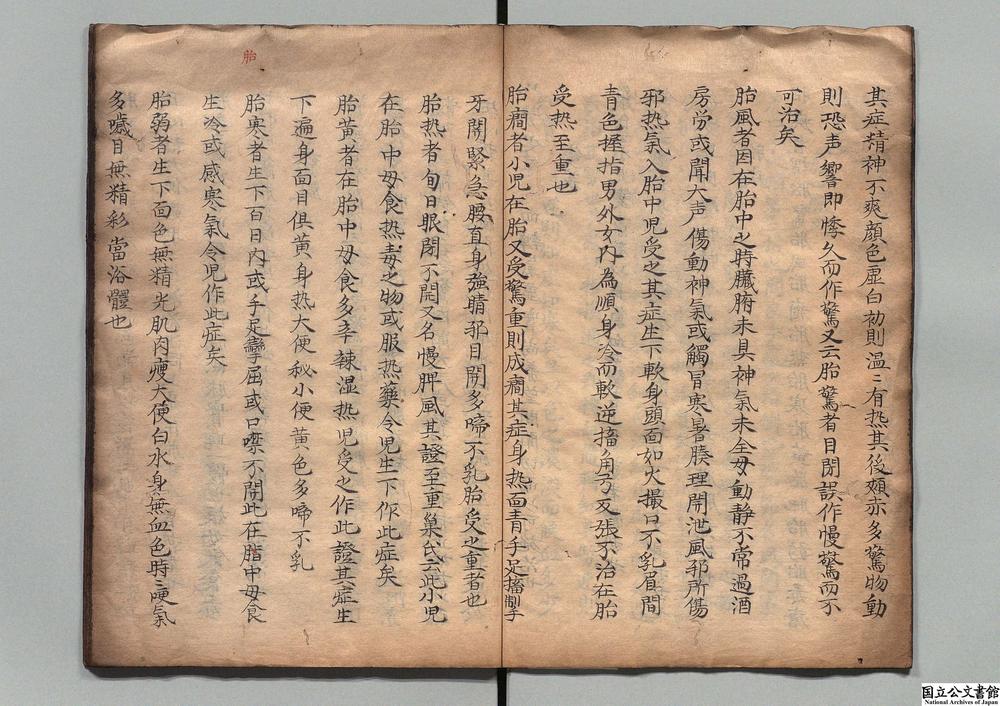 其症精神不爽顔色虚白初則温〻有热其後頬赤多驚物動
則恐声響即悸久而作驚又云胎驚者目閉誤作慢驚而不
可治矣
胎風者因在胎中之時臓腑未具神氣未全母動静不常過酒
房労或聞大声傷動神氣或觸冒寒暑腠理開泄風邪所傷
邪热氣入胎中児受之其症生下軟身頭面如火撮口不乳眉間
青色握指男外女内為順身冷而軟逆搐角弓反張不治在胎
受热至重也
胎癇者小児在胎又受驚重則成癇其症身热面青手足搐制手
牙関緊急腰直身強晴邪目開多啼不乳胎受之重者也
胎热者旬日眼閉不開又名慢脾風其證至重巢氏云此小児
在胎中母食热毒之物或服热藥令児生下作此症矣
胎黄者在胎中母食多辛辣湿热児受之作此證其症生
下遍身面目俱黄身热大便秘小便黄色多啼不乳
胎寒者生下百日内或手足攣屈或口噤不開此在䐈中母食
生冷或感寒氣令児作此症矣
胎弱者生下面色無精光肌肉瘦大使白水身無血色時〻哽氣
多噦目無精彩當浴體也
胎
国立公文書館
National Archives of Japan